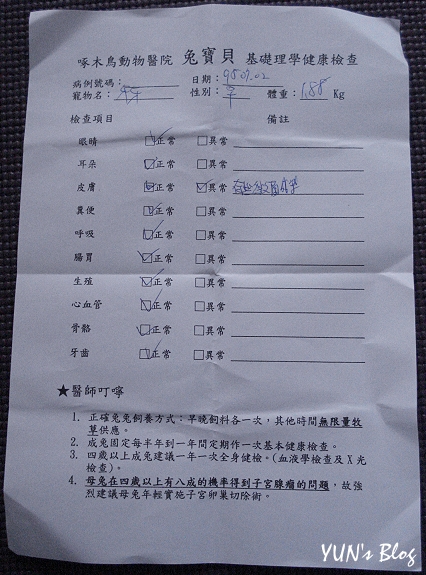 啄木鳥動物醫院 兔寶貝 基礎理學健康檢查
病例號碼： 日期：95.07.02
寵物名： 性別： 體重：1.88 Kg
檢查項目 備註
眼睛 正常 異常
耳朵 正常 異常
皮膚 正常 異常
糞便 正常 異常
呼吸 正常 異常
腸胃 正常 異常
生殖 正常 異常
心血管 正常 異常
骨骼 正常 異常
牙齒 正常 異常
★醫師叮嚀
1. 正確兔兔飼養方式：早晚飼料各一次，其他時間無限量牧
草供應。
2. 成兔固定每半年到一年間定期作一次基本健康檢查。
3. 四歲以上成兔建議一年一次全身健檢。(血液學檢查及X光
檢查)。
4. 母兔在四歲以上有八成的機率得到子宮腺瘤的問題，故強
烈建議母兔年輕實施子宮卵巢切除術。
YUN's Blog